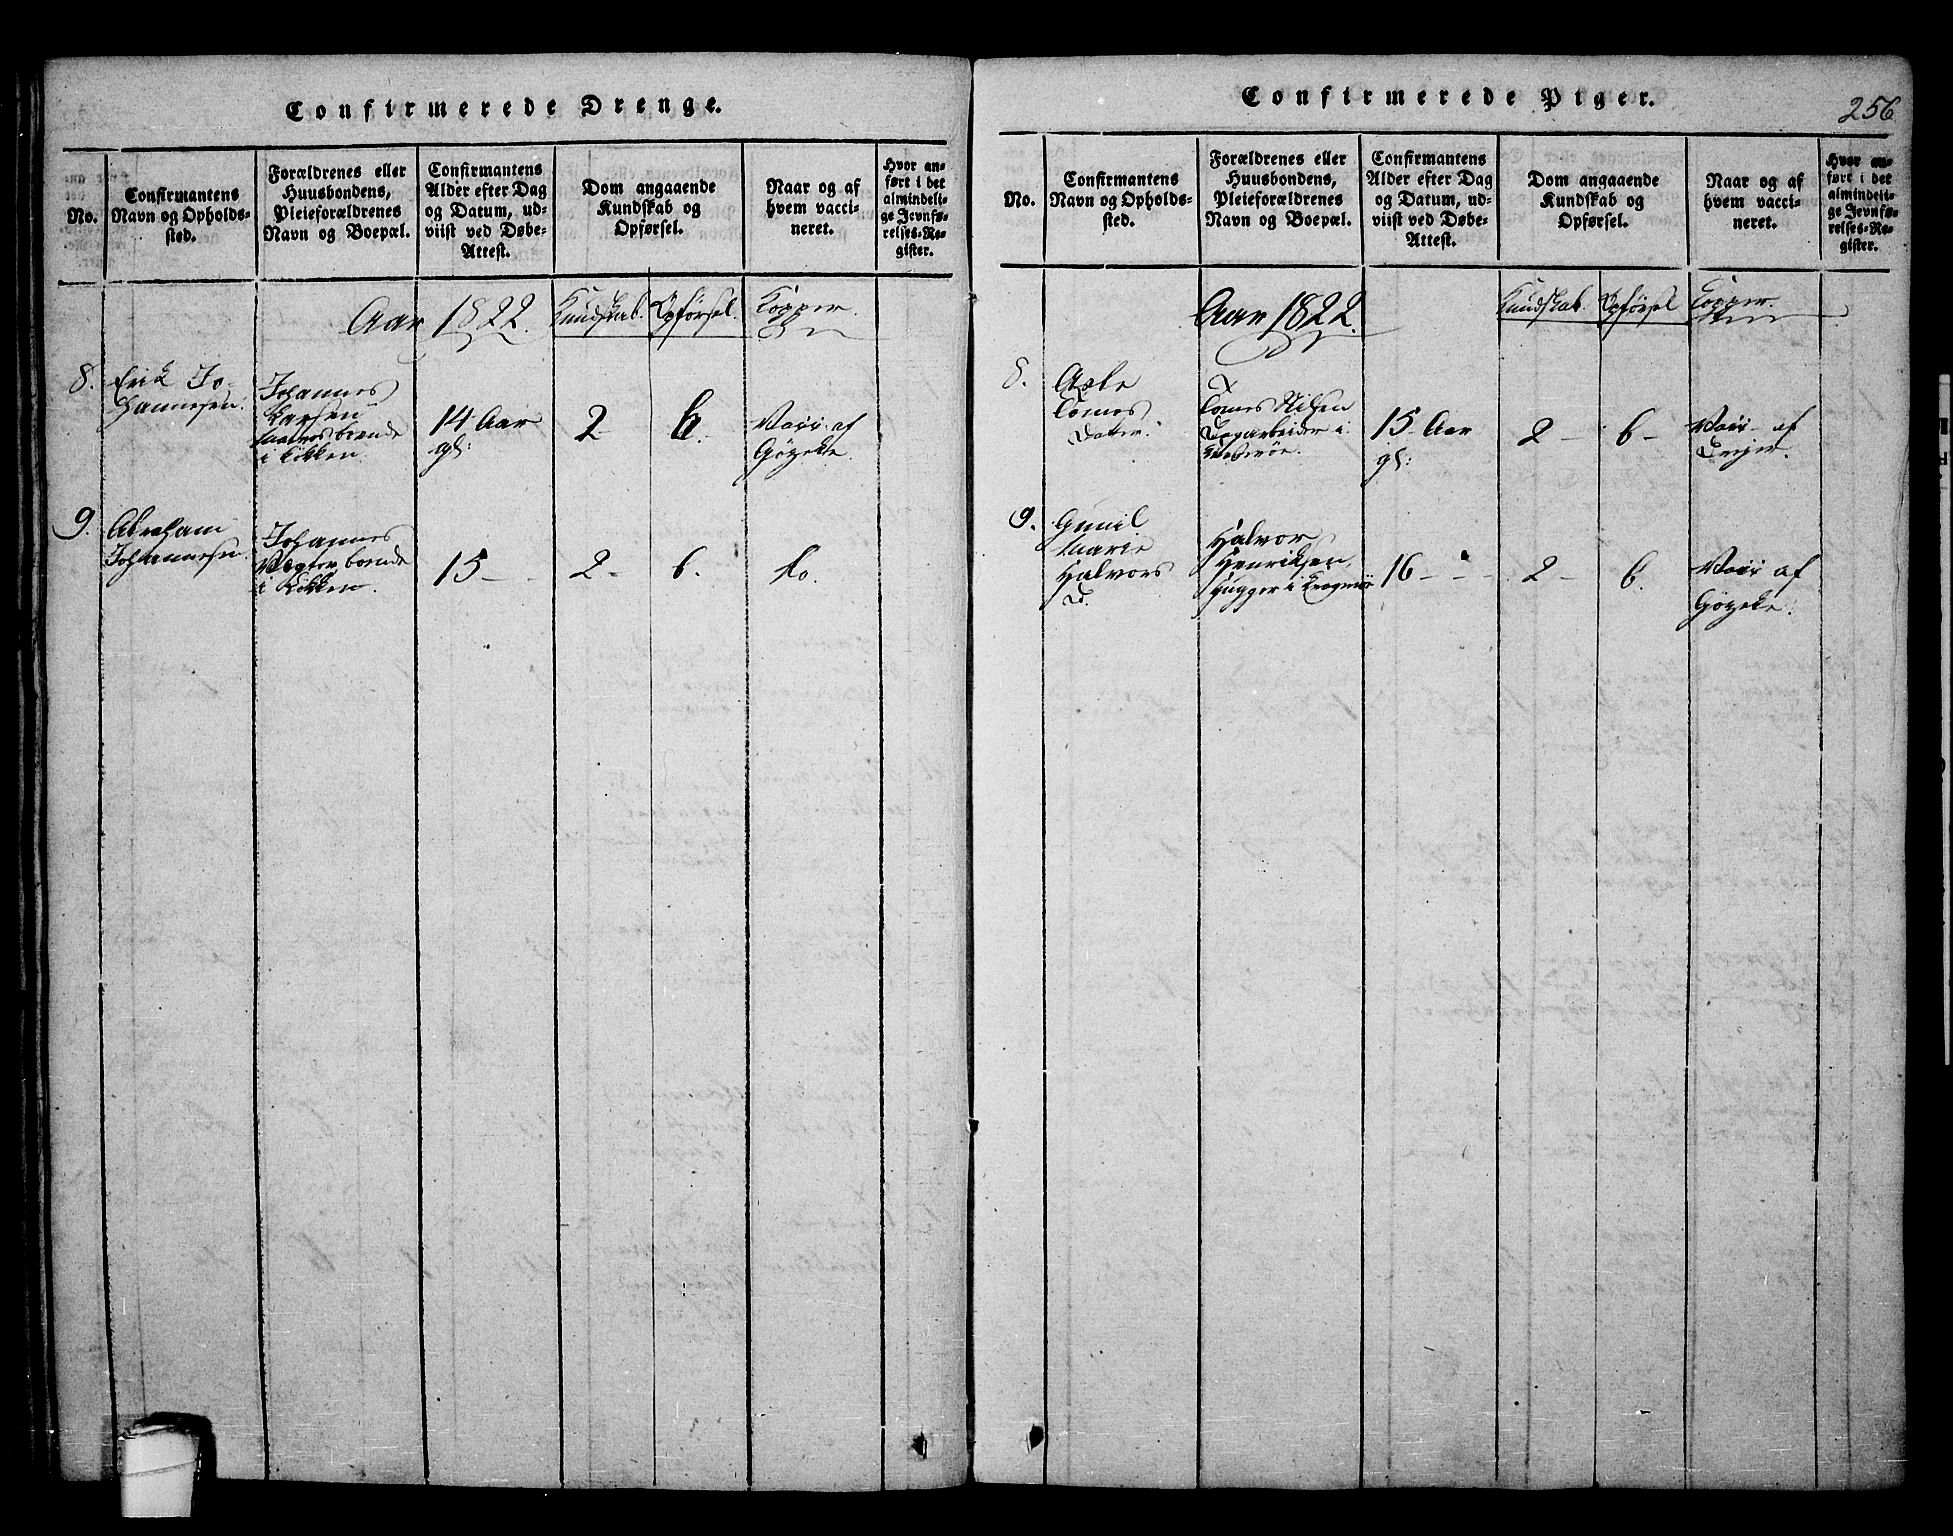 Confirmerede Drenge.
No.
Confirmantens
Navn og Opholds-
sted.
Forældrenes eller
Huusbondens,
Pleieforældrenes
Navn og Boepæl.
Confirmantens
Alder efter Dag
og Datum, ud-
viist ved Døbe-
Attest.
Dom angaaende
Kundskab og
Opførsel.
Naar og af
hvem vacci-
neret.
Hvor an-
ført i det
almindeli-
ge Jevnfø-
relses-Re-
gister.
Aar 1822.
Kundskab.
Opførsel.
Kopper.
8.
Erik Jo-
hannesen.
Johannes
Larsen
boende
i Løkken.
14 Aar
gl:
2
6.
Vacc: af
9.
Abraham
Johannesen
Johannes
boende
i Løkken.
15 –
2 –
6.
do.
Confirmerede Piger.
256
No.
Confirmantens
Navn og Opholds-
sted.
Forældrenes eller
Huusbondens,
Pleieforældrenes
Navn og Boepæl.
Confirmantens
Alder efter Dag
og Datum, ud-
viist ved Døbe-
Attest.
Dom angaaende
Kundskab og
Opførsel.
Naar og af
hvem vacci-
neret.
Hvor an-
ført i det
almindeli-
ge Jevnfø-
relses-Re-
gister.
Aar 1822.
Kundskab.
Opførsel
Kopper.
8.
Tomes
Datter.
Tomes Nilsen
Dagarbeider i
15 Aar
gl:
2 –
6 –
Vacc: af
9.
Gunil
Marie
Halvors
D.
Halvor
Henriksen,
Hugger i Kragerøe
16 – –
2 –
6.
Vacc: af